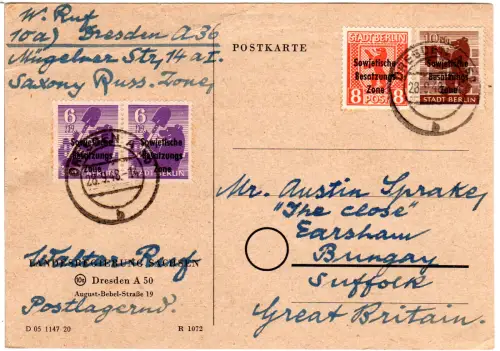 W. Ruf
10a) Dresden A 36
Mügelner Str, 14 a I.
Saxony Russ. Zone,
POSTKARTE
STADT BERLIN
Sowjetische
Besatzungs
Zone
8 POST 8
Sowjetische
Besatzungs
Zone
STADT BERLIN
6 6
Sowjetische Sowjetische
Besatzungs Besatzungs
Zone Zone
STADT BERLIN
DRESDEN
b
Mr. Austin Sprake,
"The Close"
Earsham
Bungay
Suffolk
Great Britain.
LANDESREGIERUNG SACHSEN
Walter Ruf
10a Dresden A 50
August-Bebel-Straße 19
Postlagernd.
D 05 1147 20 R 1072